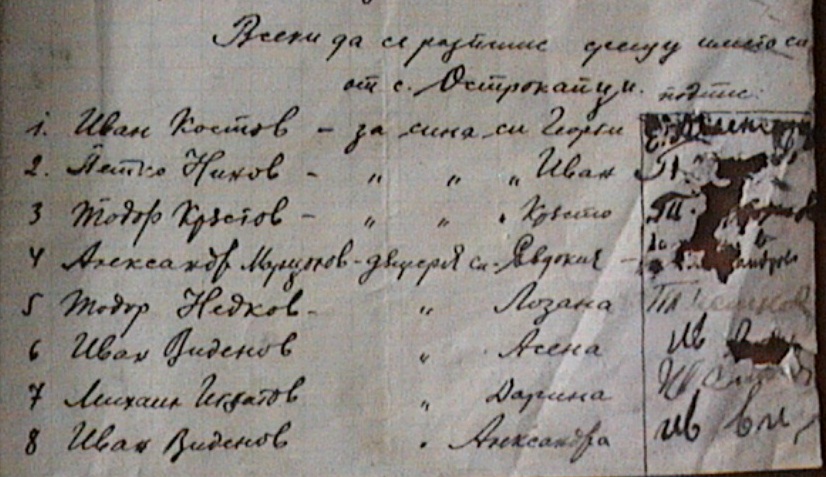 Всеки да се разпише срещу името си
от с. Острокапци. подпис:
1. Иван Костов – за сина си Георги
2. Петко Ников – " " " Иван
3 Тодор Кръстов – " " " Кръсто
4 Александр Маринов – дъщеря си – Евдокия –
5 Тодор Недков – " Лозана
6 Иван Виденов " Асена
7 Михаил Игнатов " Дарина
8 Иван Виденов " Александра ив ви